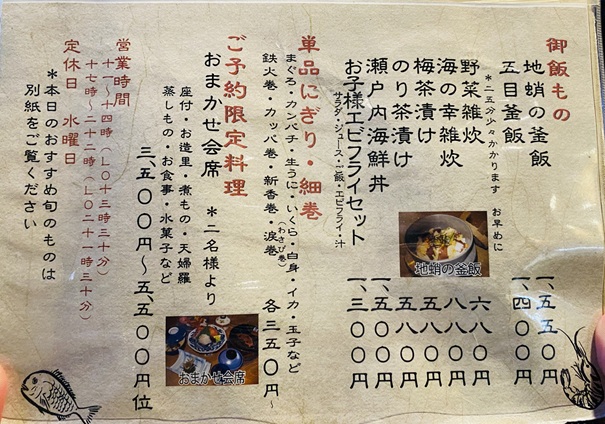 御飯もの
地蛸の釜飯 一、五五〇円
五目釜飯 一、四〇〇円
＊二五分少々かかります　お早めに
野菜雑炊 六八〇円
海の幸雑炊 八八〇円
梅茶漬け 五八〇円
のり茶漬け 五八〇円
瀬戸内海鮮丼 一、五〇〇円
お子様エビフライセット 一、三〇〇円
サラダ・ジュース・ご飯・エビフライ・汁
地蛸の釜飯
単品にぎり・細巻
まぐろ・カンパチ・生うに・いくら・白身・イカ・玉子など
鉄火巻・カッパ巻・新香巻・涙巻(わさび巻) 各三五〇円～
ご予約限定料理
おまかせ会席　＊二名様より
座付・お造里・煮もの・天婦羅
蒸しもの・お食事・水菓子など
三、五〇〇円～五、五〇〇円位
おまかせ会席
営業時間
十一～十四時（ＬＯ十三時三十分）
十七時～二十二時（ＬＯ二十一時三十分）
定休日　水曜日
＊本日のおすすめ旬のものは
別紙をご覧ください